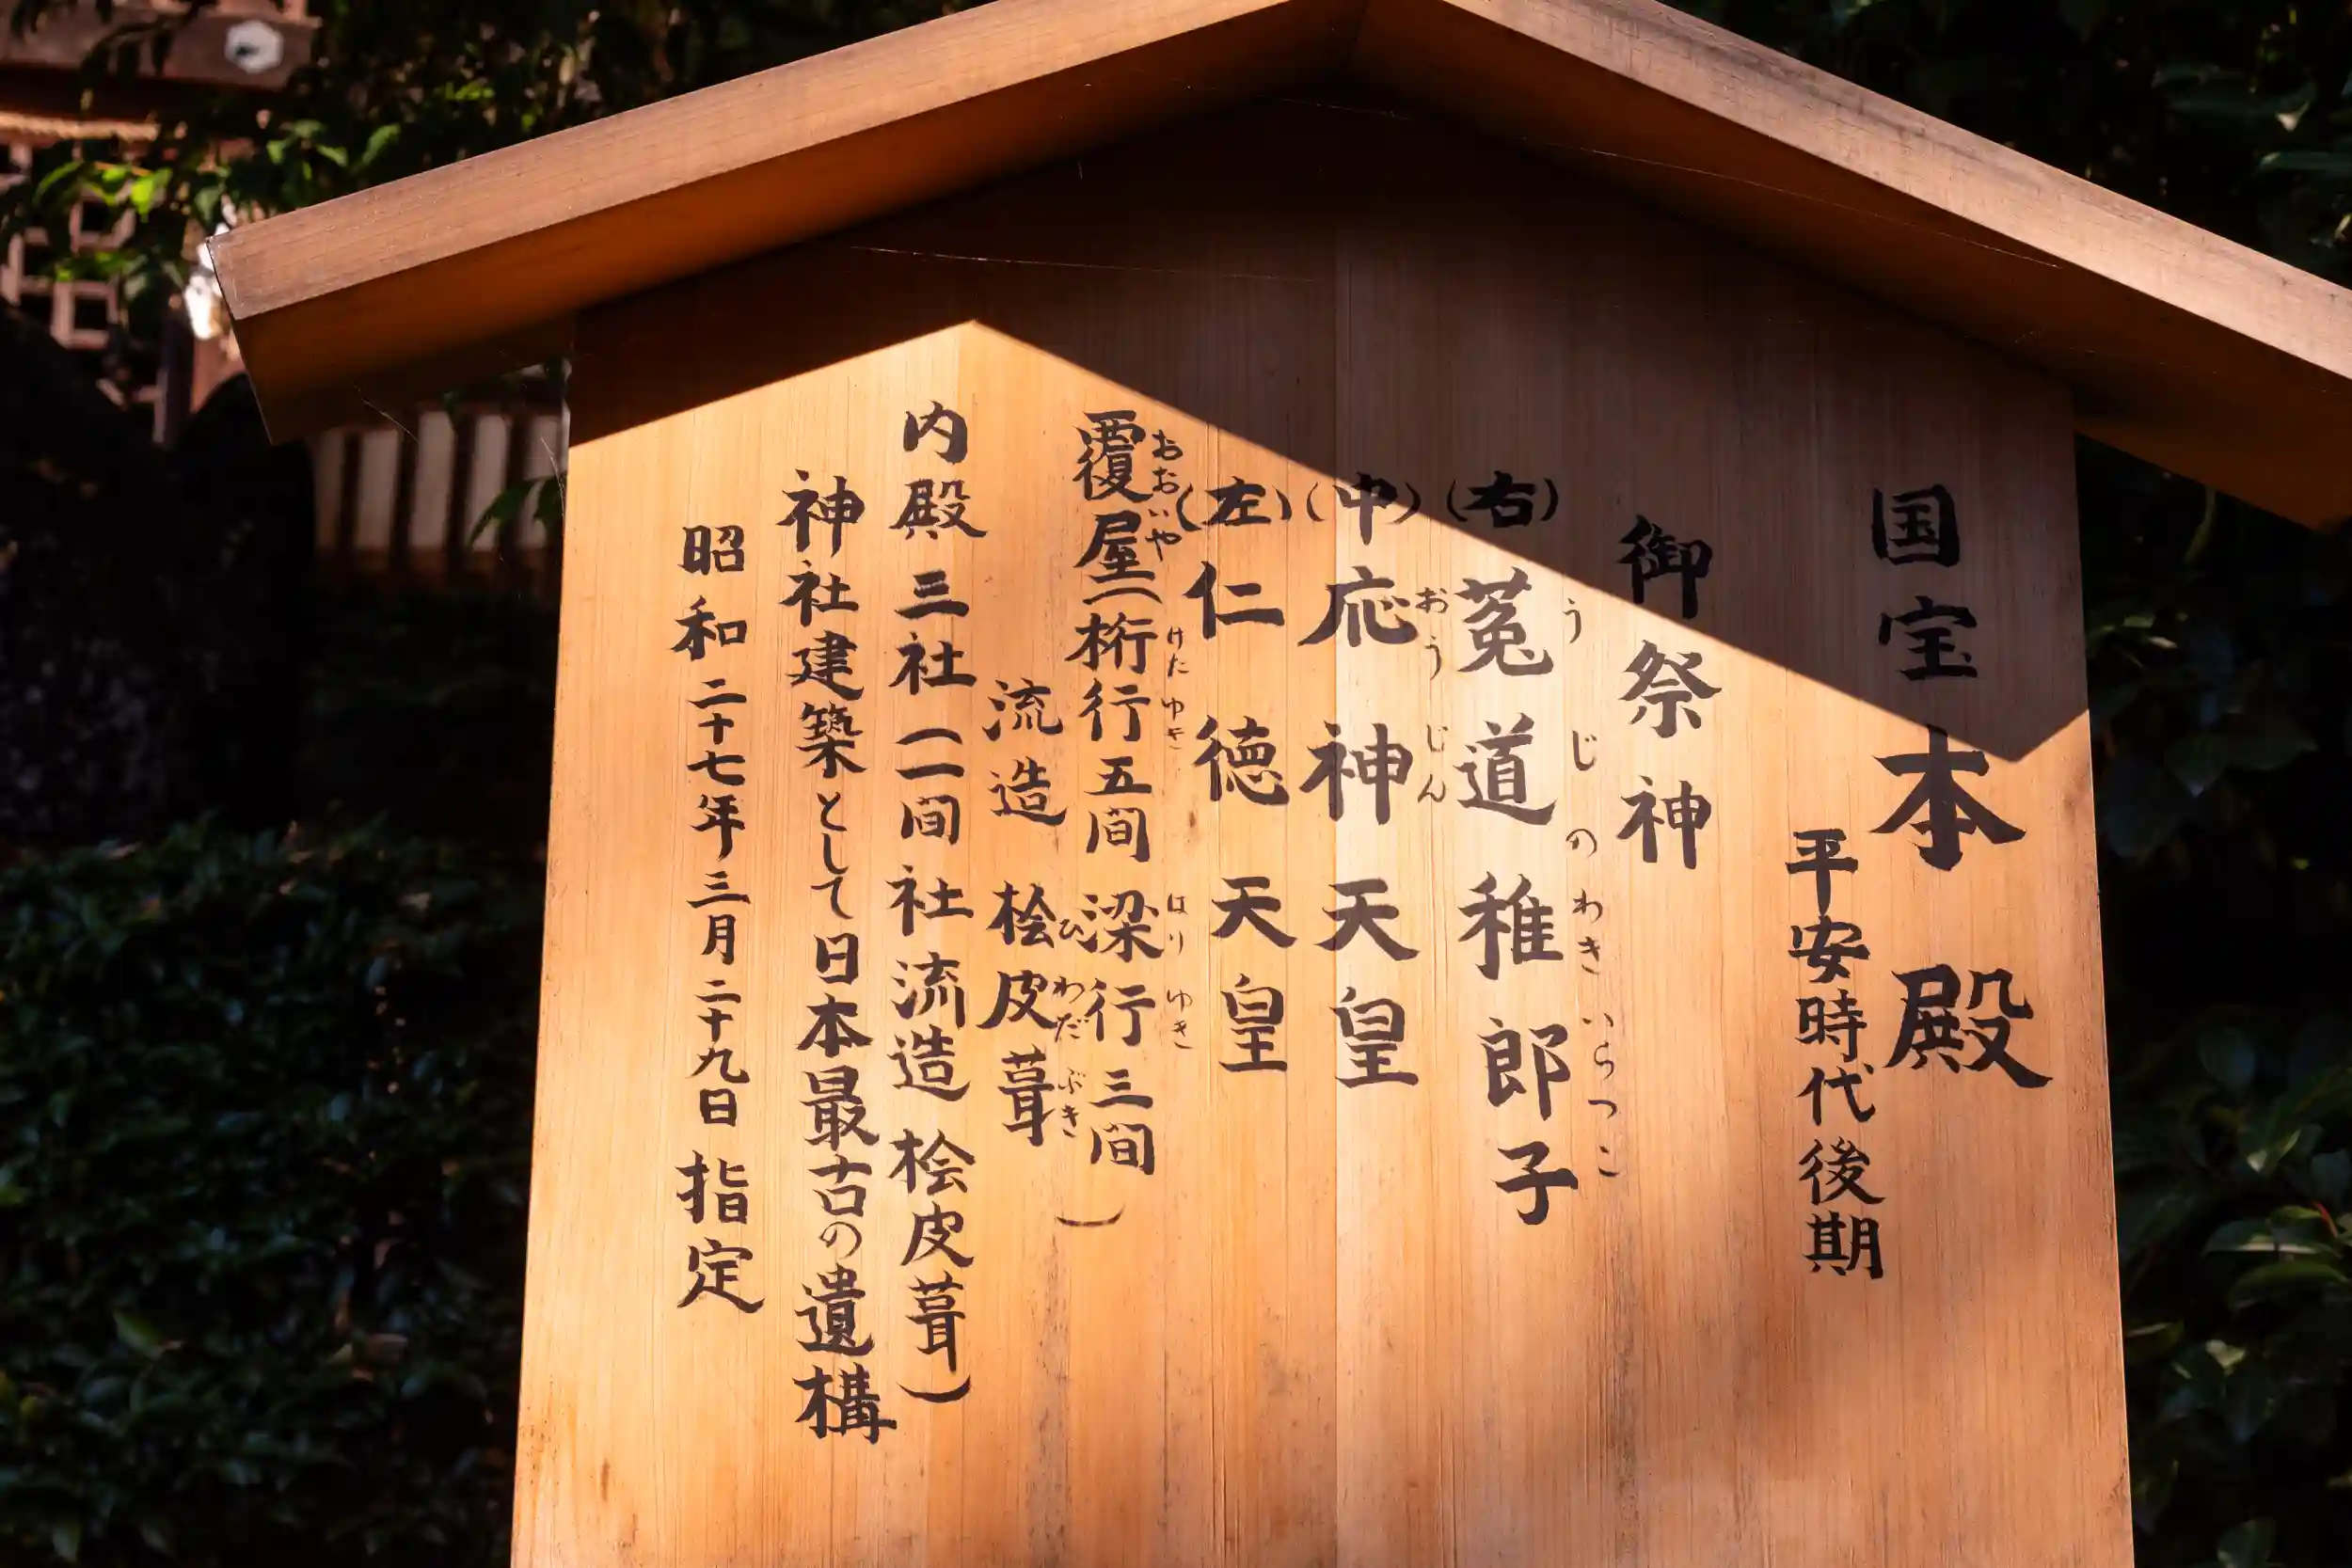 国宝 本殿
平安時代後期
御祭神
(右)菟道稚郎子
うじのわきいらつこ
(中)応神天皇
おうじん
(左)仁徳天皇
覆屋(桁行五間 梁行三間)
おおいや けたゆき はりゆき
流造 桧皮葺
ひわだぶき
内殿 三社(一間社流造 桧皮葺)
神社建築として日本最古の遺構
昭和二十七年三月二十九日 指定